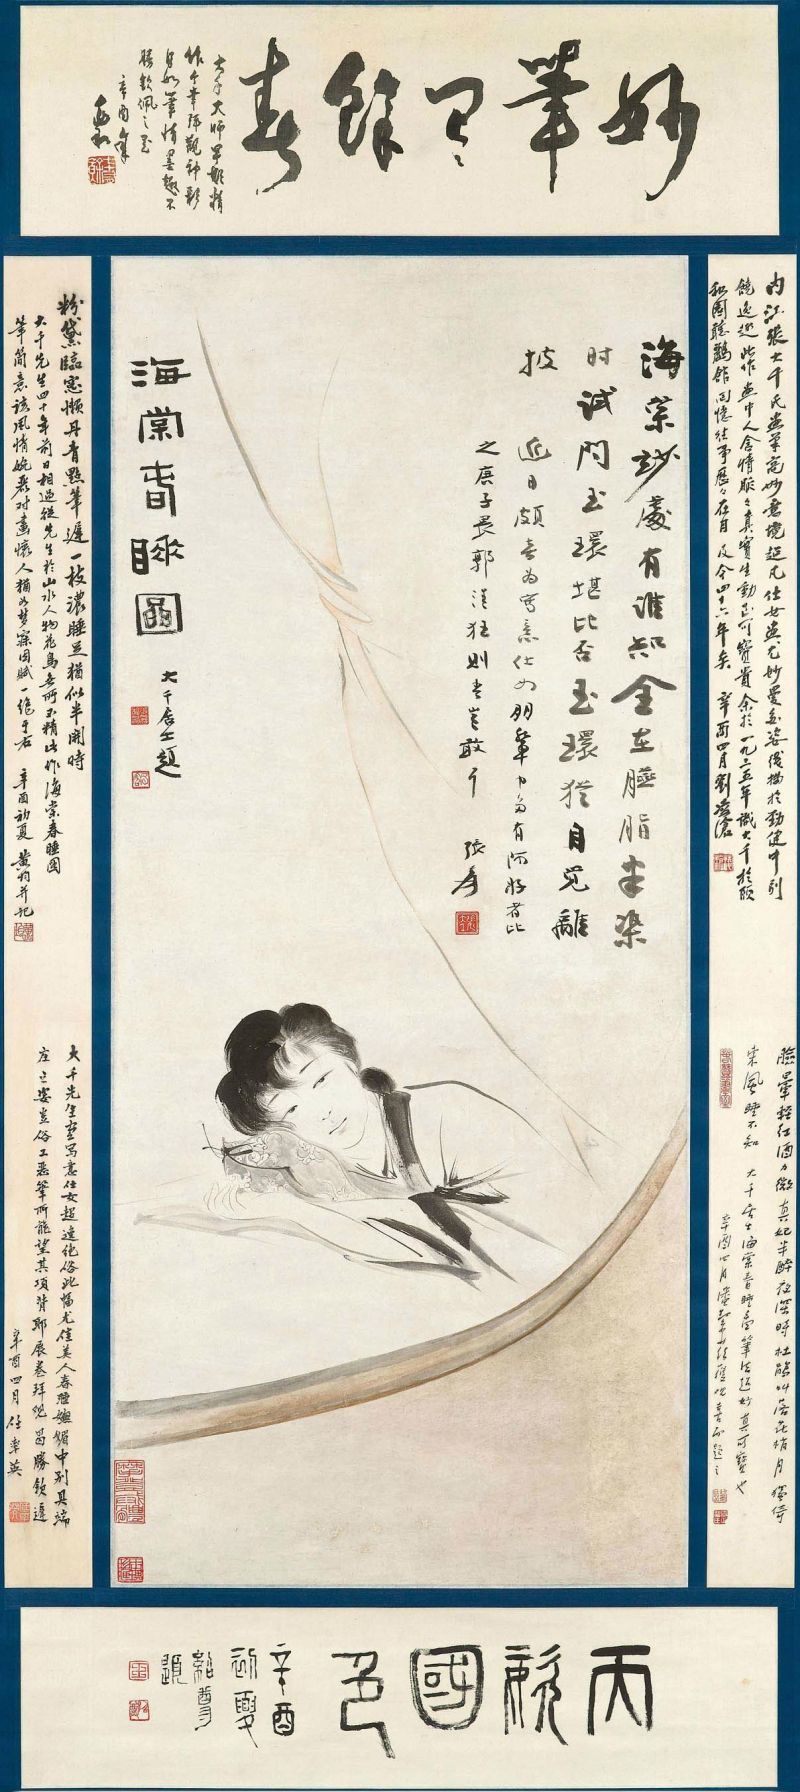 妙筆餘春
大千大師早期精
作今幸拜觀神彩
自如筆情墨趣不
勝欽佩之至
辛酉年
海棠妙處有誰知全在臙脂未染
時試問玉環堪比否玉環猶自覺離
披
近日頗喜為寫意仕女朋輩中多有阿好者比
之唐子畏郭清狂則吾豈敢 張爰
海棠春睡圖
大千居士題
内江張大千氏畫筆高妙意境超凡仕女畫尤妙曼多姿綫描於勁健中別
饒逸趣此作畫中人含情脈々真實生動至可寶貴余於一九三五年識大千於頤
和園聽鸝館回憶往事歷々在目及今四十六年矣 辛酉四月劉凌滄
臉暈輕紅酒力微真妃半醉夜深時杜鵑叫落花梢月獨倚
東風睡不知 大千居士海棠春睡圖筆法超妙真可寶也
辛酉四月潘絜茲題之
粉黛臨窗懶丹青點筆遲一枝濃睡足猶似半開時
大千先生四十年前日相過從先生於山水人物花鳥無所不精此作海棠春睡圖
筆簡意該風情婉麗對畫懷人猶如夢寐因賦一絕于右 辛酉初夏 黄均并記
大千先生畫寫意仕女超逸絕俗此幅尤佳美人春睡嫵媚中別具端
庄之姿豈俗工惡筆所能望其項背耶展卷拜觀曷勝欽遲
辛酉四月任率英
天姿國色
辛酉
初夏
紹尊
題